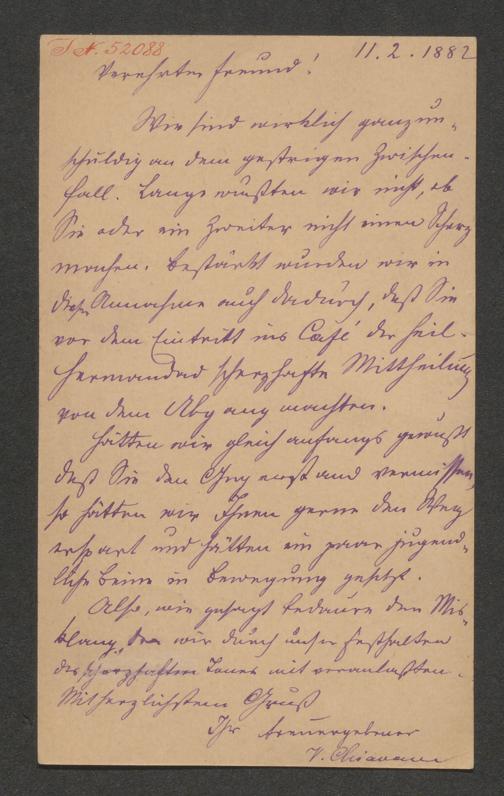 I. N. 52088
11.2.1882
Verehrter Freund!
Wir sind wirklich ganz un-
schuldig an dem gestrigen Zwischen-
fall. Lange wußten wir nicht, ob
Sie oder ein Zweiter nicht einen Scherz
machen. Bestärkt wurden wir in
dieser Annahme auch dadurch, daß Sie
vor dem Eintritt ins Café der heil.
Hermandad scherzhafte Mittheilung
von dem Abgang machten.
Hätten wir gleich anfangs gewußt
daß Sie den Gegenstand vermissen,
so hätten wir Ihnen gerne den Weg
erspart und hätten ein paar jugend-
liche Beine in Bewegung gesetzt.
Also, wie gesagt bedaure den Mis-
klang, den wir durch unser Festhalten
des scherzhaften Tones mit veranlaßten.
Mit herzlichstem Gruß
Ihr treuergebener
V. Chiavacci